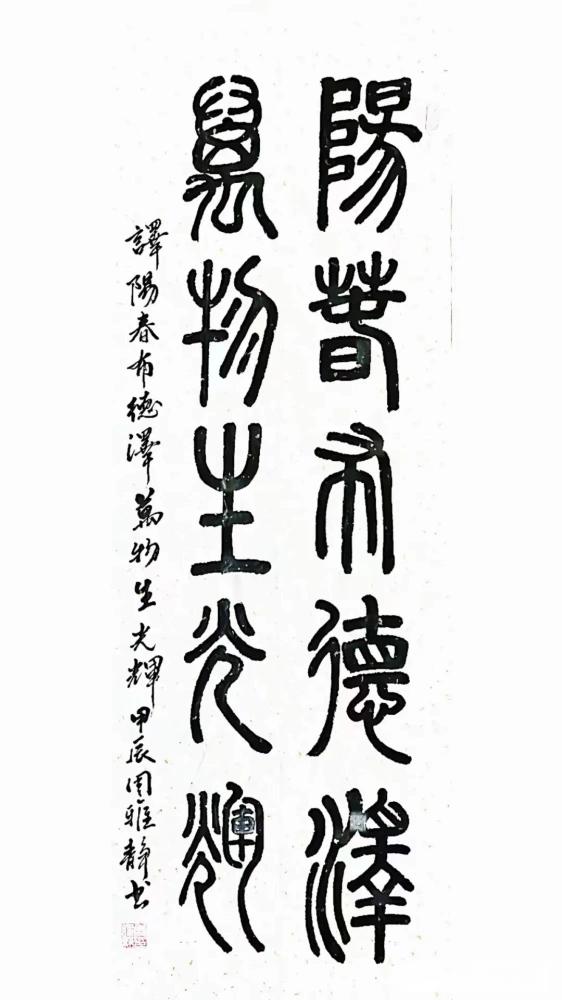 陽春布德澤
萬物生光輝
譯陽春布德澤萬物生光輝甲辰周雅靜书